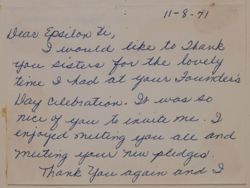 11-8-71
Dear Epsilon Xi,
I would like to Thank
you sisters for the lovely
time I had at your Founders
Day Celebration. It was so
nice of you to invite me. I
enjoyed meeting you all and
meeting your new pledges.
Thank You again and I